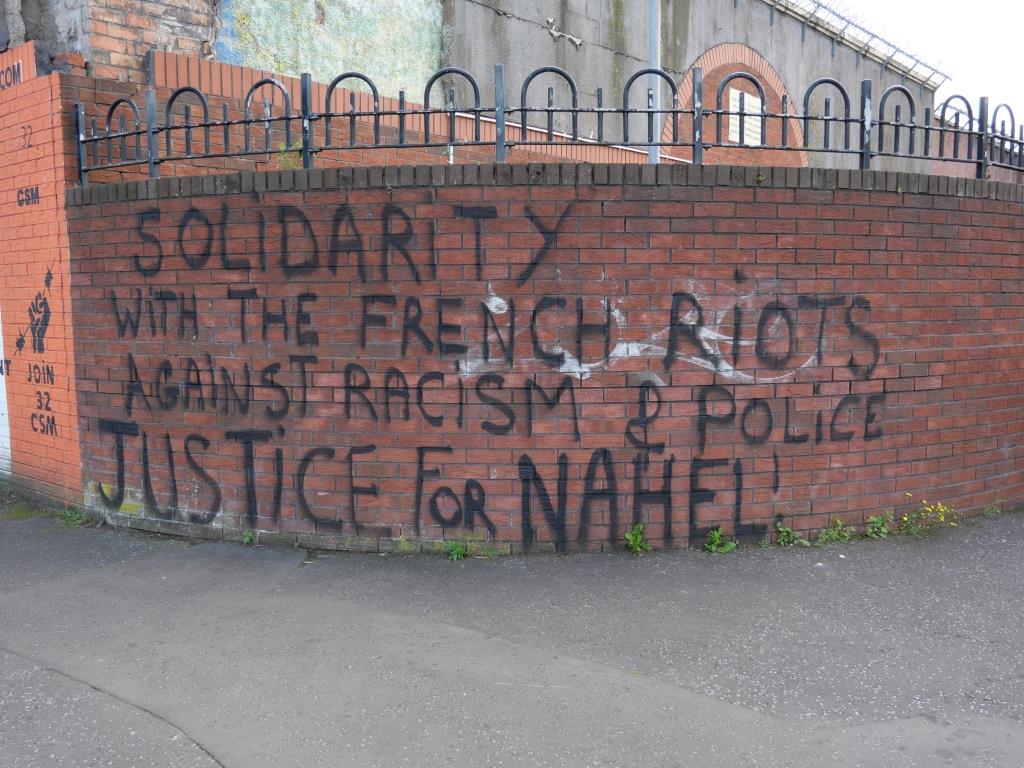 SOLIDARITY
WITH THE FRENCH RIOTS
AGAINST RACISM & POLICE
JUSTICE FOR NAHEL!
COM
32
CSM
JOIN
32
CSM